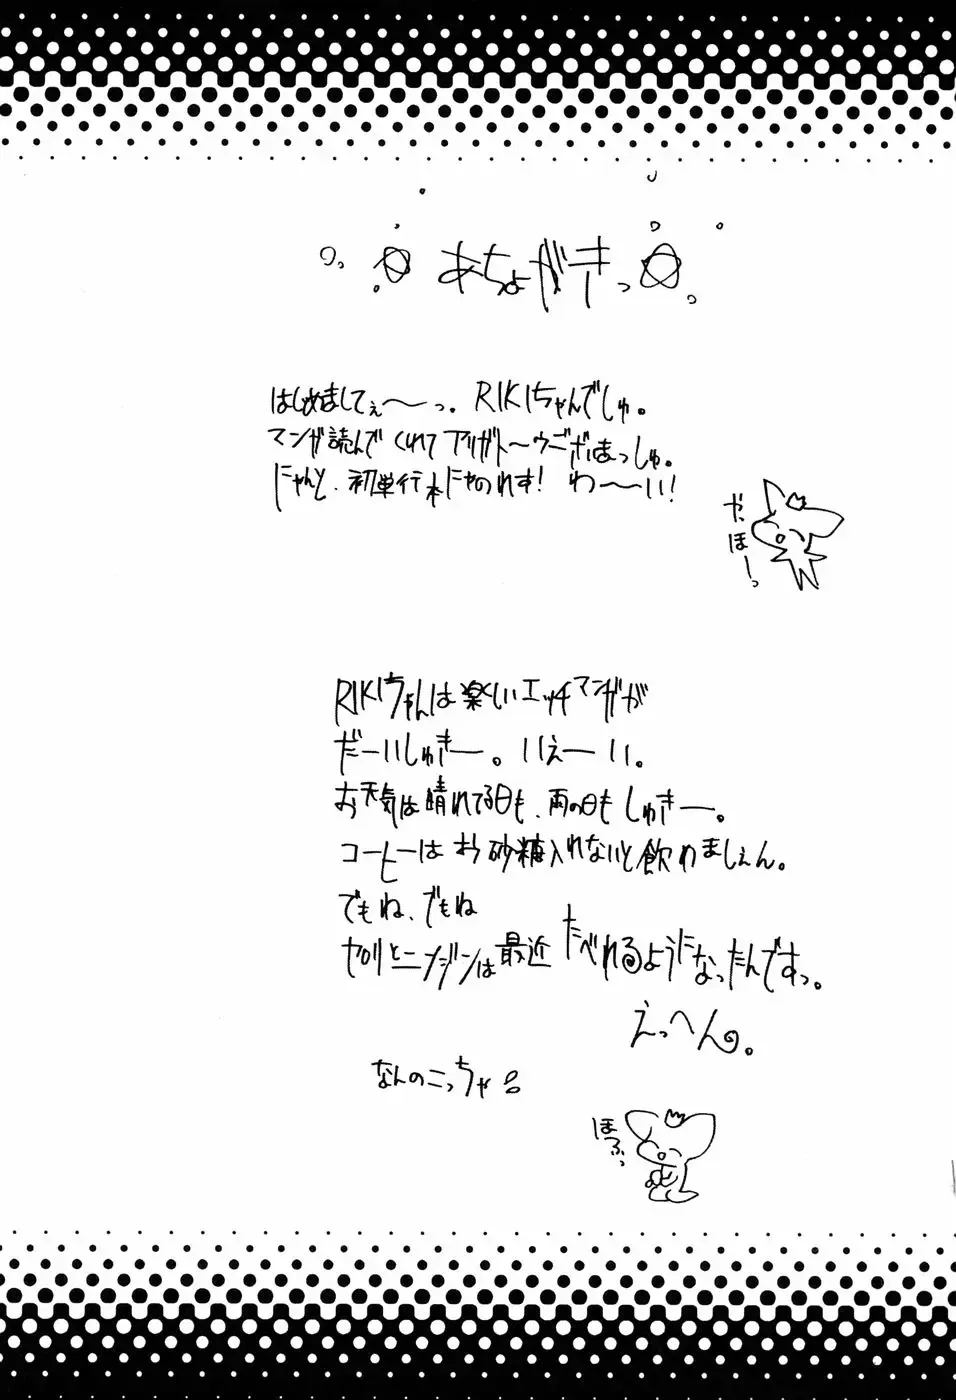 あちょがきっ
はじめましてぇ～っ。RIKIちゃんでしゅ。
マンガ読んでくれてアリガト～ウございまっしゅ。
にゃんと、初単行本にゃのれす！わ～い！
やっほーっ
RIKIちゃんは楽しいエッチマンガが
だーいしゅきー。いぇーい。
お天気は晴れてる日も、雨の日もしゅきー。
コーヒーはお砂糖入れないと飲めましぇん。
でもね、でもね
セロリとニンジンは最近たべれるようになったんですっ。
えっへん。
なんのこっちゃ
ほふっ